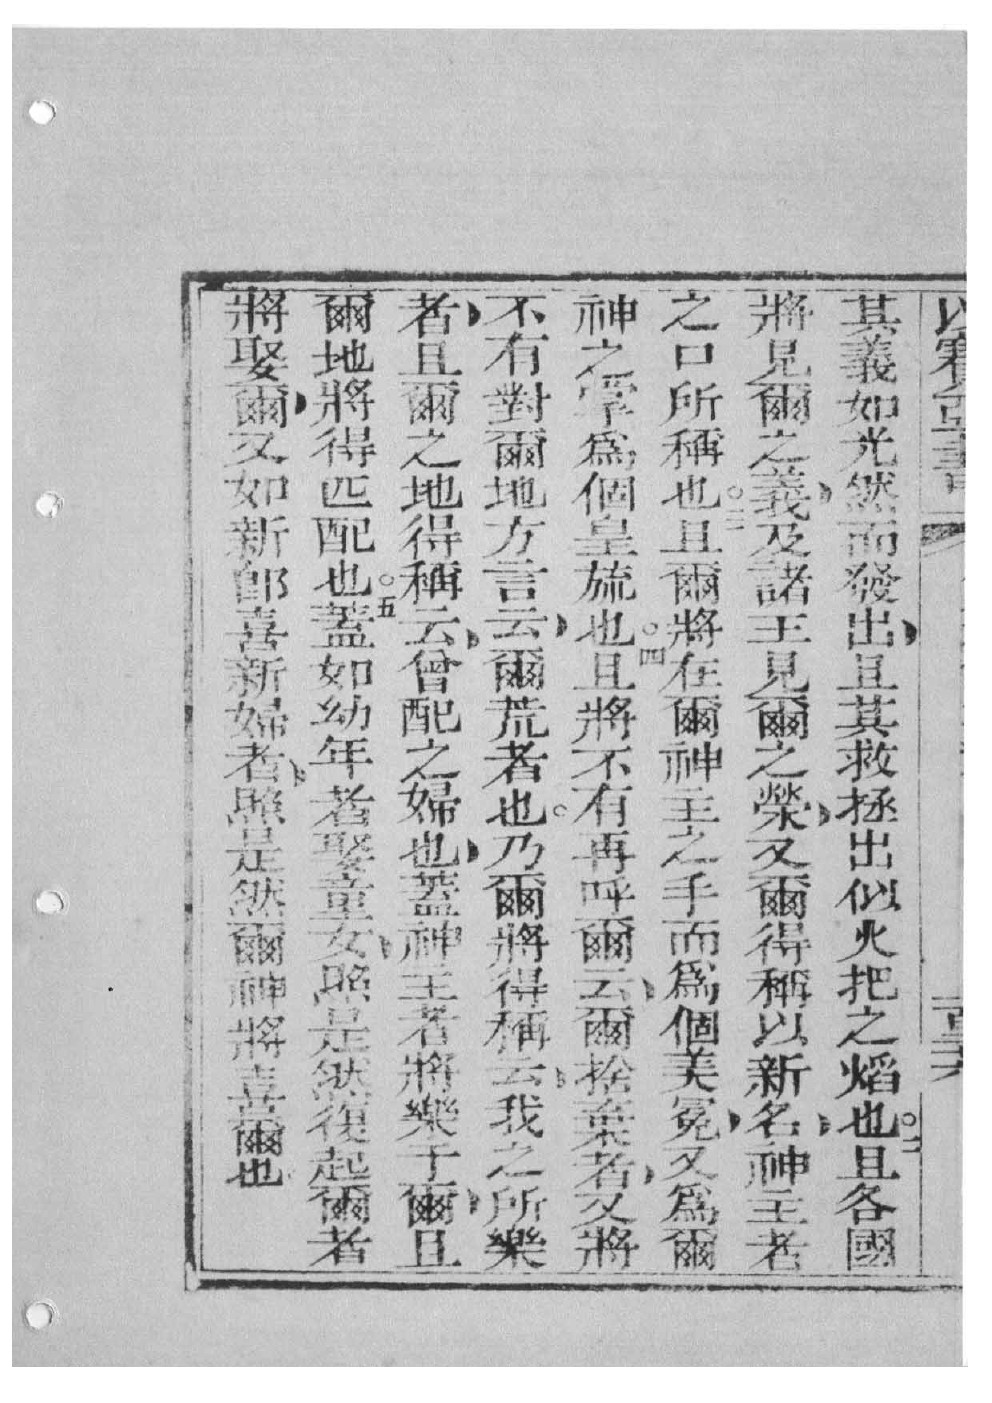 以賽亞書
其義如光然而發出且其救拯出似火把之熖也○二且各國
將見爾之義及諸王見爾之榮又爾得稱以新名神主者
之口所稱也○三且爾將在爾神主之手而爲個美冕又爲爾
神之掌爲個皇旒也○四且將不有再呼爾云爾捨棄者又將
不有對爾地方言云爾荒者也乃爾將得稱云我之所樂
者且爾之地得稱云曾配之婦也蓋神主者將樂于爾且
爾地將得匹配也○五蓋如幼年者娶童女照是然復起爾者
將娶爾又如新郎喜新婦者照是然爾神將喜爾也